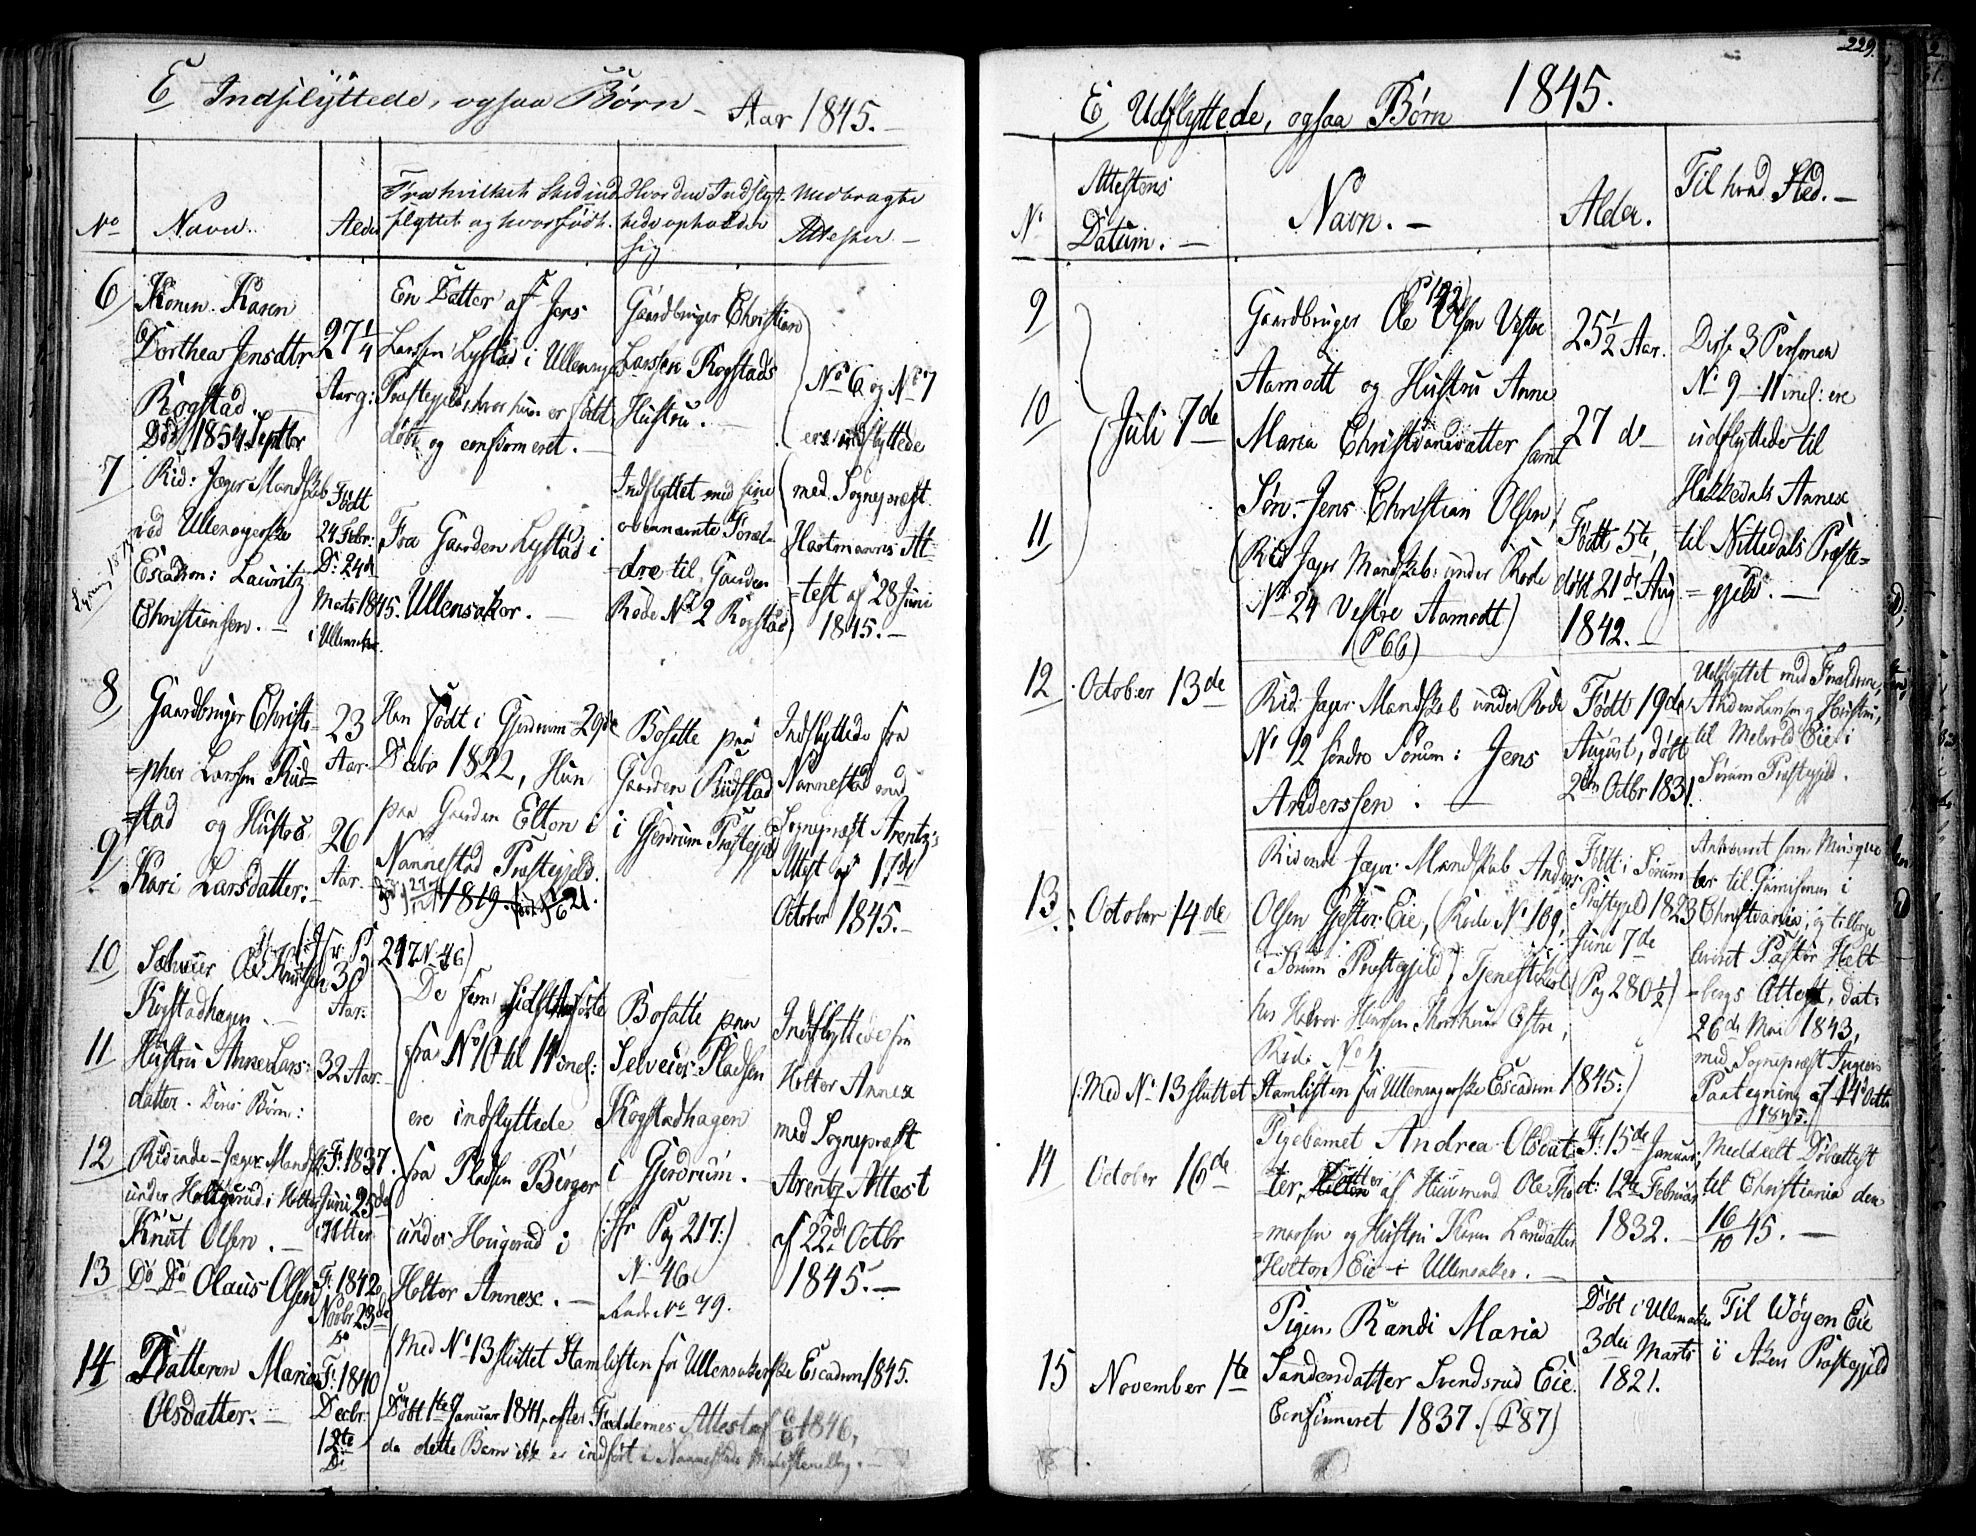 E Indflyttede, ogsaa Børn - Aar 1845. -
No
Navn.
Alder
Fra hvilket Sted ind-
flyttet og hvor født.
Hvor den Indflyt-
tede opholder
sig
Medbragte
Attester -
6
Konen Karen
Dorthea Jensdtr
Rogstad. -
Død 1854 Septbr
27 1/4
Aarg:
En Datter af Jens
Larssen Lystad i Ullensager
Præstegjeld, hvor hun er født
døbt og confirmeret. -
Gaardbruger Christian
Larssen Rogstads
Hustru. -
No 6 og No 7
ere indflyttede
7
Rid: Jæger Mandskab
ved Ullensagerske
Escadron: Lauritz
Christiansen. -
Født
24 Febr:
D: 24de
Marts 1845.
i Ullensaker.
Fra Gaarden Lystad i
Ullensaker. -
Indflyttet med sine
ovennævnte Foræl-
dre til Gaarden
Rode No 2 Rogstad
med Sognepræst
Hartmanns At-
test af 28 Juni
1845. -
8
Gaardbruger Christo-
pher Larssen Rud-
stad og Hustru
23
Aar.
Han født i Gjerdrum 29de
Decbr 1822, Hun
paa Gaarden Elton i
Nannestad Præstegjeld.
1819.
Bosatte paa
Gaarden Rudstad
i Gjerdrum Præstegjeld
Indflyttede fra
Nannestad med
Sognepræst Arentz's
Attest af 17de
October 1845. -
9
Kari Larsdatter: -
26
Aar.
(Jfr P. 217 No 46)
10
Selveier Ole Knutsen
Kogstadhagen. -
36
Aar.
De fem sidst anførte
fra No 10 til 14 incl:
ere indflyttede
fra Pladsen Berger
under Haugerud i
Holter Annex. -
Bosatte paa
Selveier-Pladsen
Kogstadhagen
i Gjerdrum. -
(:Jfr Pag 217:)
No 46
Lade No 79.
Indflyttede fra
Holter Annex
med Sognepræst
Arentz Attest
af 22de Octbr
1845. -
11
Hustru Anne Lars-
datter. Deres Børn:
32 Aar.
12
Ridende Jæger Mandsk:
under Haugerud i Holter
Knut Olsen. -
F: 1837.
Juni 25de
i Holter
13
Do Do Olaus Olsen
F: 1842
Novbr 23de
Do
14
Datteren Maria
Olsdatter. -
F: 1840
Decbr:
12te
Do
(Med No 13 sluttet Stamlisten for Ullensakerske Escadron 1845.
Døbt 1te Januar 1841, efter Fædrenes Attest af 1846,
da dette Barn ikke er indført i Nannestads Ministerialbog. -
229.
E Udflyttede, ogsaa Børn 1845.
No
Attestens
Datum. -
Navn. -
Alder.
Til hvad Sted. -
9
10
11
Juli 7de
(P 122)
Gaardbruger Ole Olsen Vestre
Aamodt og Hustru Anne
Maria Christiansdatter samt
Søn Jens Christian Olsen,
(Rid Jæger Mandskab: under Rode
No 24 Vestre Aamodt)
(P 66)
25 1/2 Aar.
27 do
Født 5te,
døbt 21de Aug
1842. -
Disse 3 Personer
No 9 - 11 incl: ere
udflyttede til
Hakkedals Annex
til Nittedals Præste-
gjeld. -
12
October 13de
Rid: Jæger Mandskab under Rode
No 12 søndre Sørum: Jens
Anderssen. -
Født 19de
August, døbt
2den Octbr 1831.
Udflyttet med Forældrene,
Anders Larsen og Hustru,
til Melvold Eie i
Sørum Præstegjeld.
13
October 14de
Ridende Jæger: Mandskab Anders
Olsen Gjestor-Eie, (Rode No 109,
i Sørum Præstegjeld) Tjenestekarl
hos Halvor Hansen Østre,
Rode No 4
Født i Sørum
Præstegjeld 1823
Juni 7de
(Pag 280 1/2)
Antaget som Musque-
ter til Garnisonen i
Christiania, og tilbage-
leveret Pastor Helt-
bergs Attest, dat:
26de Mai 1843,
med Sognepræst
Paategning af 14de Octb
1845.
(:Med No 13 sluttet Stamlisten for Ullensagerske Escadron 1845:)
14
October 16de
Pigebarnet Andrea Olsdat-
ter, Datter af Huusmand Ole Tho-
massen og Hustru Karen Larsdatter
Holton Eie i Ullensaker. -
F: 15de Januar,
d: 12te Februar
1832. -
Meddeelt Døbeattest
til Christiania den
16/10 45. -
15
November 1te
Pigen Randi Maria
Sandersdatter Svendsrud Eie.
Confirmeret 1837. (P 87)
Døbt i Ullensaker
3die Marts
1821.
Til Wøyen Eie
i Aker Præstegjeld